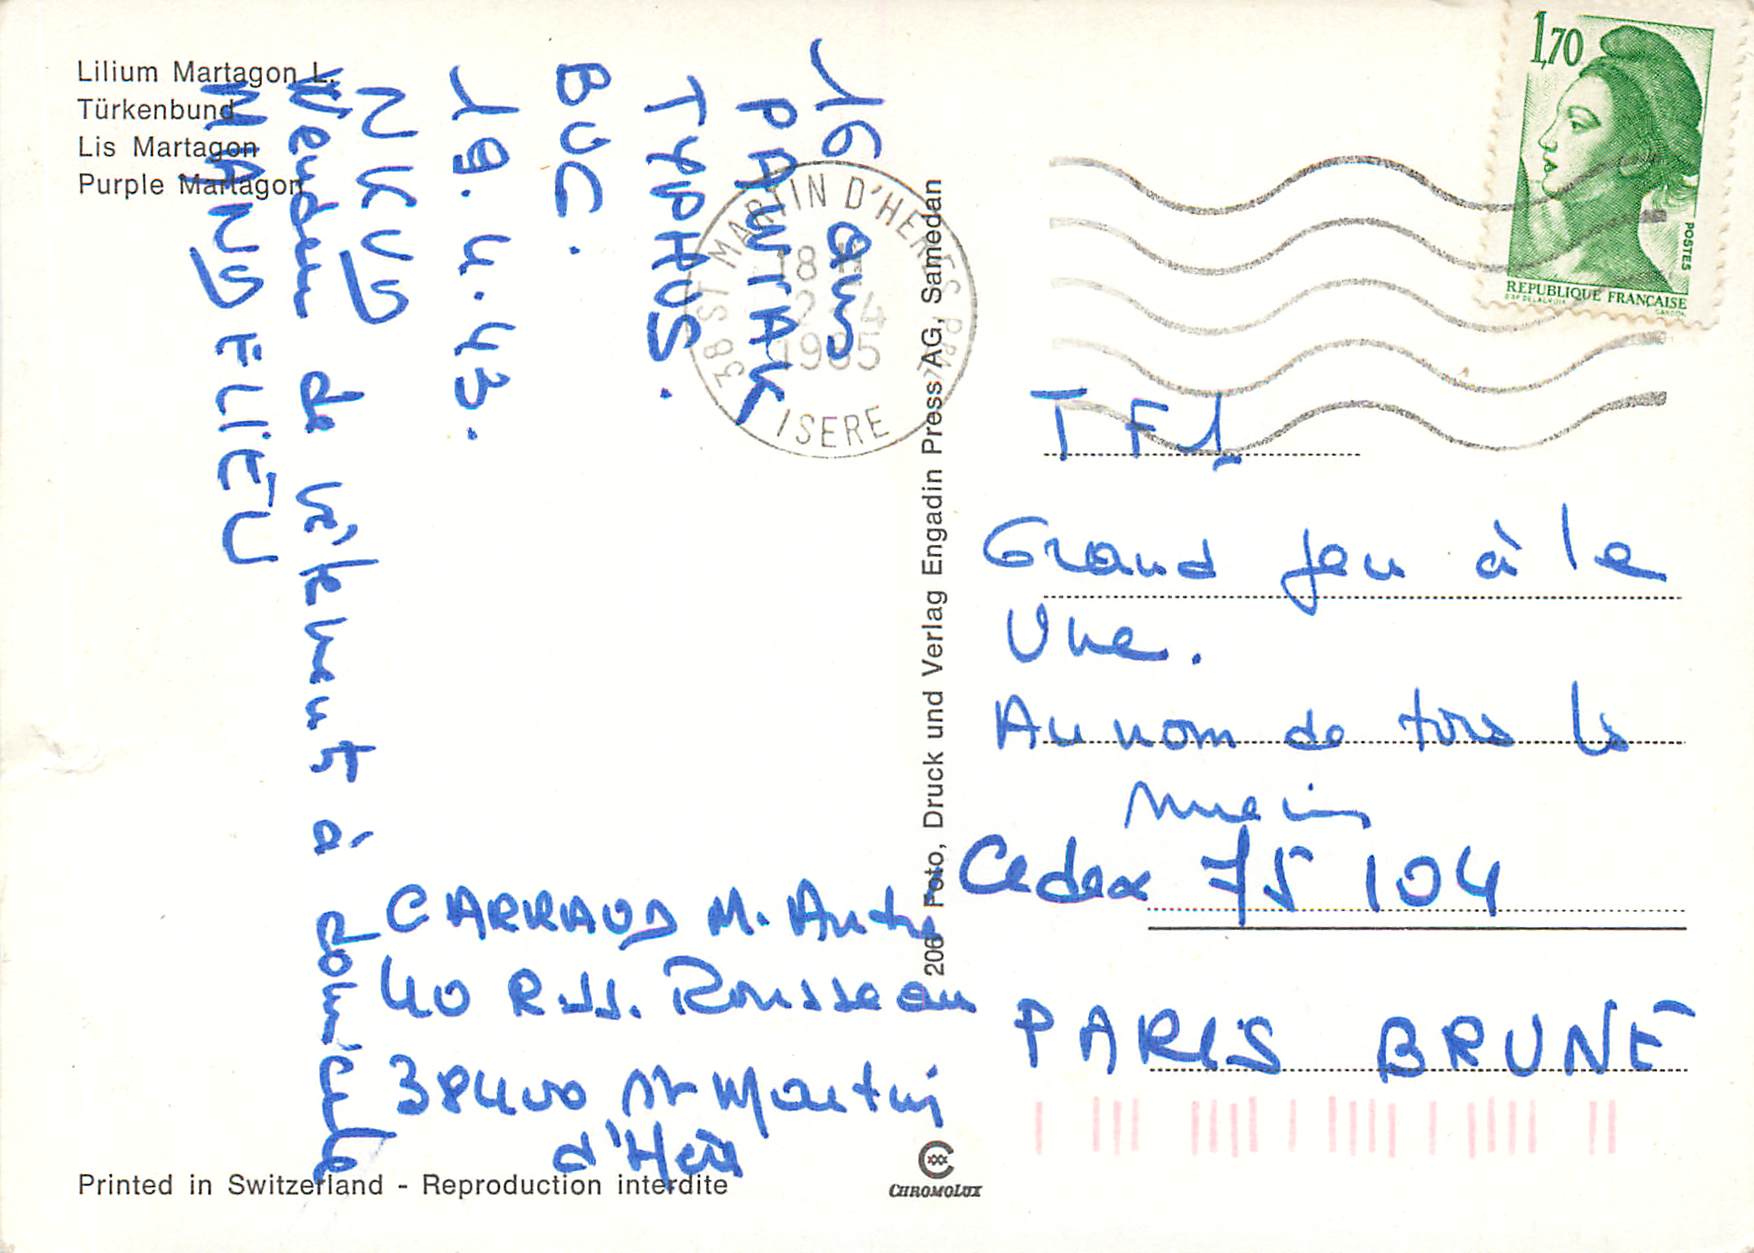 Lilium Martagon L.
Türkenbund
Lis Martagon
Purple Martagon
16 ans
PAWIAK
TYPHUS.
BUC.
19.4.43.
NKVD
Vendeur de vêtements à domicile
MANDELIEU
CARRAUD M. André
40 R. JJ. Rousseau
38400 St Martin
d'Hères
Printed in Switzerland - Reproduction interdite
206 Foto, Druck und Verlag Engadin Press AG, Samedan
CHROMOLUX
38 ST MARTIN D'HERES PPAL
18 H
2 - 4
1985
ISERE
1,70
POSTES
REPUBLIQUE FRANÇAISE
TF1
Grand jeu à la
Une.
Au nom de tous les
miens
Cedex 75 104
PARIS BRUNE